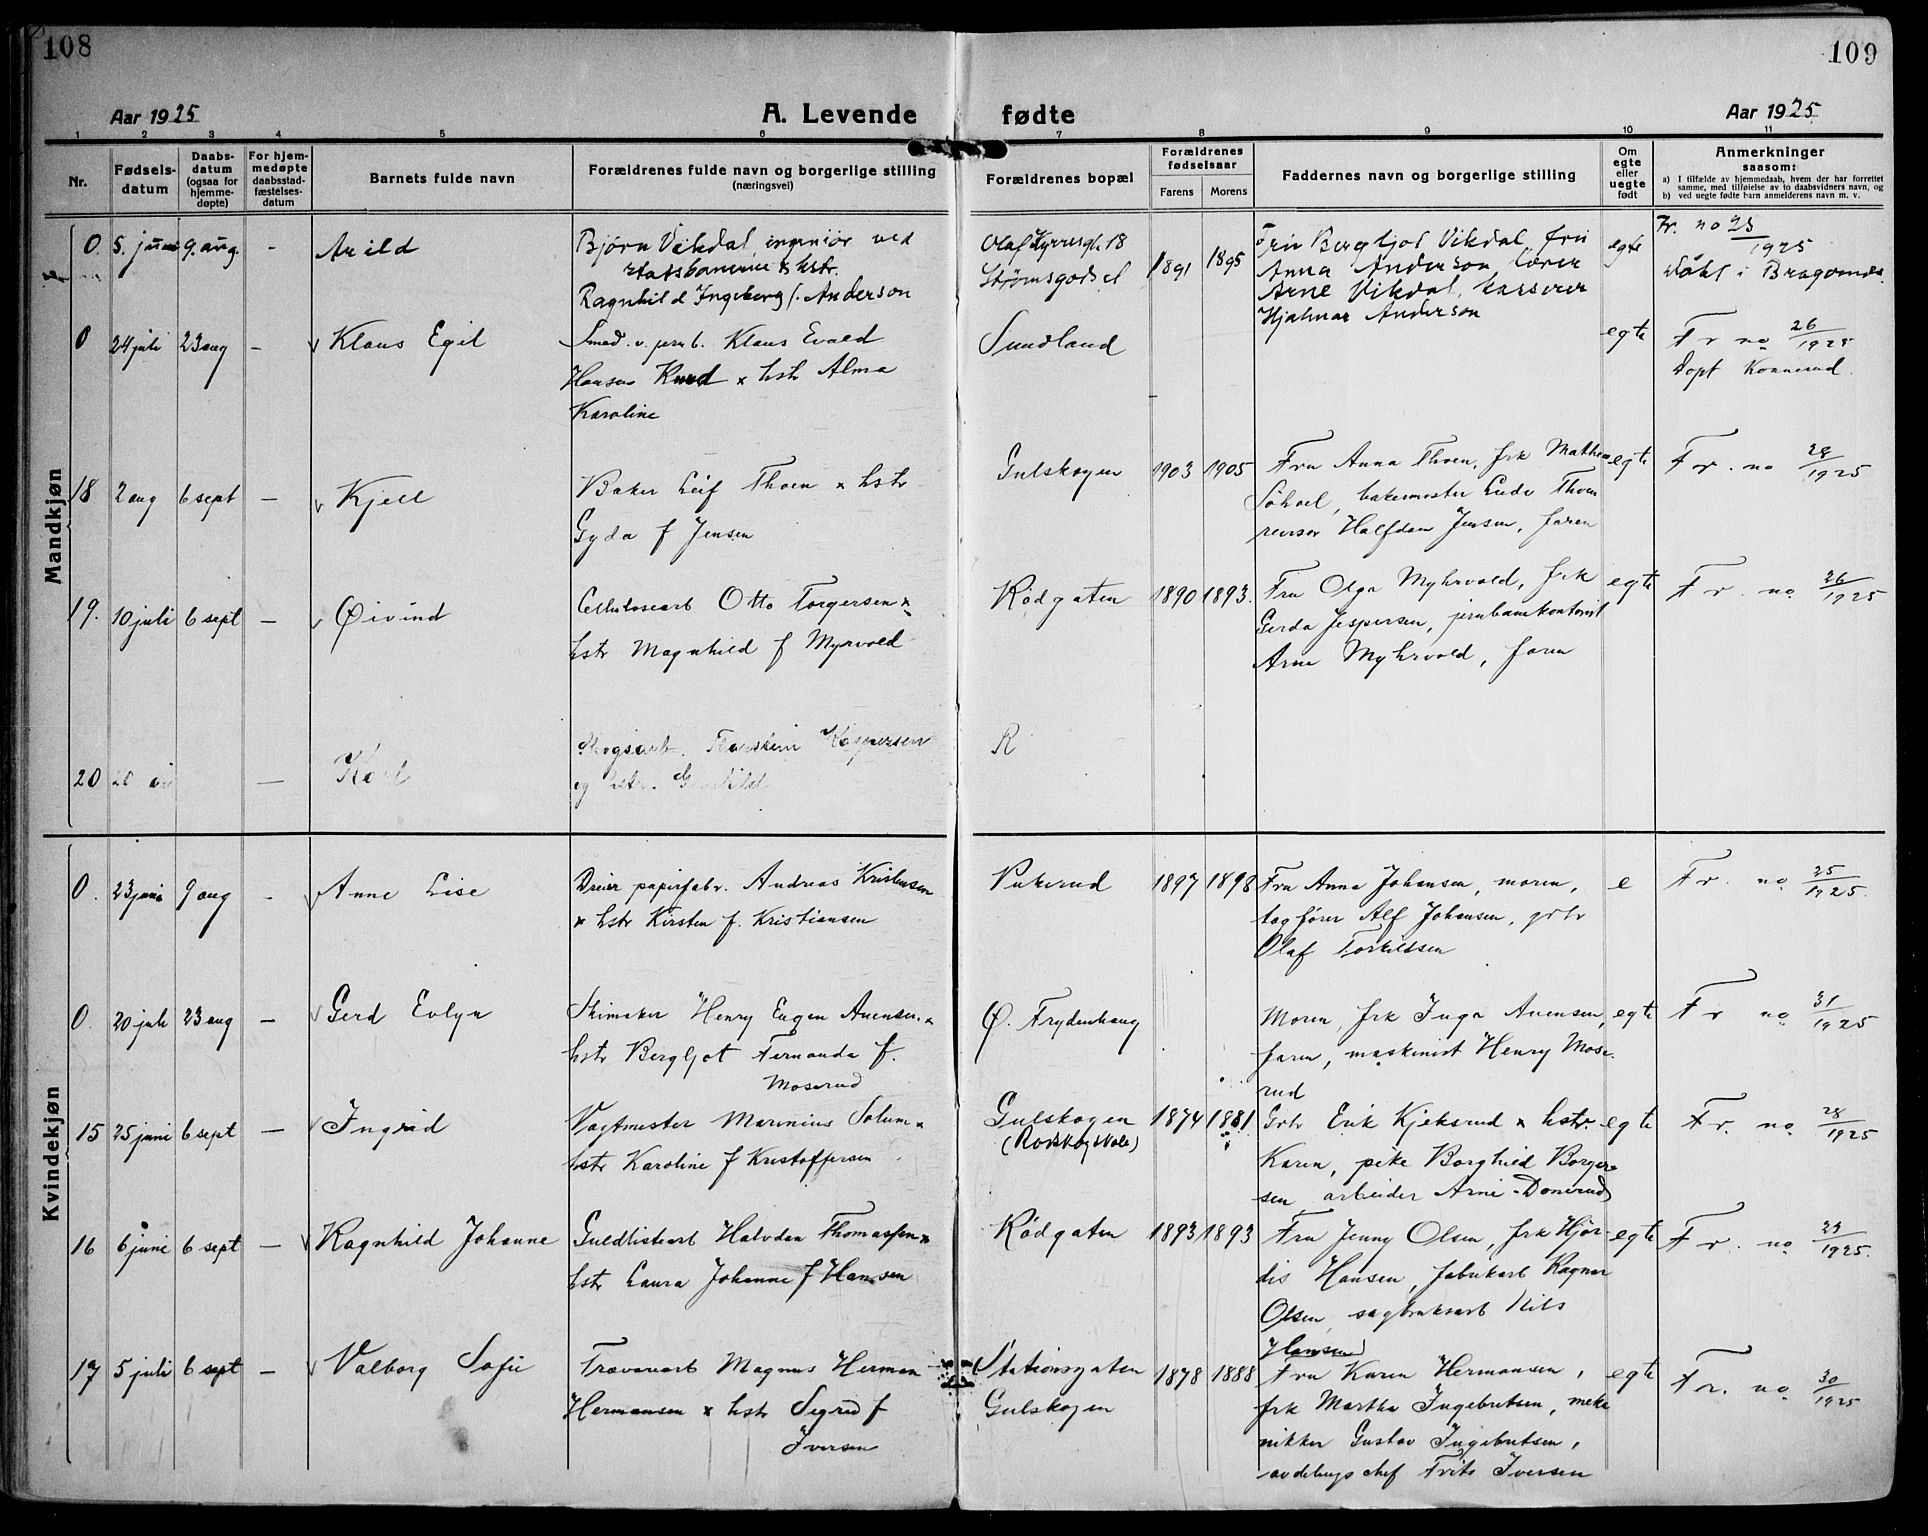 108
109
Aar 1925
A. Levende
fødte
Aar 1925
1 2 3 4 5 6 7 8 9 10 11
Nr.
Fødsels-
datum
Daabs-
datum
(ogsaa for
hjemme-
døpte)
For hjem-
medøpte
daabsstad-
fæstelses-
datum
Barnets fulde navn
Forældrenes fulde navn og borgerlige stilling
(næringsvei)
Forældrenes bopæl
Forældrenes
fødselsaar
Farens Morens
Faddernes navn og borgerlige stilling
Om
egte
eller
uegte
født
Anmerkninger
saasom:
a) I tilfælde av hjemmedaab, hvem der har forrettet
samme, med tilføielse av to daabsvidners navn, og
b) ved uegte fødte barn anmelderens navn m. v.
Mandkjøn
0. 5. juni 9. aug. - Arild
Bjørn Vikdal ingeniør ved
statsbanerne & hstr.
Ragnhild Ingeberg f. Anderson
Olaf Kyrresgt. 18
Strømsgodset
1891 1895
Fru Bergljot Vikdal, fru
Anna Anderson, lærer
Arne Vikdal, kasserer
Hjalmar Anderson
egte
Fr. no 25/1925
Døbt i Bragernes
0 24 juli 23 aug - Klaus Egil
Smed v. jernb. Klaus Evald
Hansen Rud x hstr Alma
Karoline
Sundland
egte
Fr no 26/1925
Døpt Konnerud.
18 2 aug 6 sept - Kjell
Baker Leif Thoen x hstr
Gyda f Jensen
Gulskogen
1903 1905
Fru Anna Thoen, frk Mathea
bakermester Thoen
revisor Halfdan Jensen, faren
egte
Fr. no 28/1925
19. 10 juli 6 sept - Øivind
Cellulosearb Otto Torgersen x
hstr Magnhild f Myrvold
Rødgaten
1890 1893.
Fru Olga Myhrvold, frk
Gerda Jespersen, jernbanekontorist
Arne Myhrvold, faren
egte
Fr. no 26/1925
20 - Karl
Skogsarb. Kaspersen
og hstr.
R
Kvindekjøn
0. 23 juni 9 aug - Anne Lise
Dreier papirfabr. Andreas Kristensen
x hstr Kirsten f. Kristiansen
Pukerud
1897 1898
Fru Anna Johansen, moren,
togfører Alf Johansen, grbr
Olaf Torkildsen
e
Fr. no 25/1925.
0. 20 juli 23 aug - Gerd Evlyn
Skimaker Henry Eugen Auensen x
hstr Bergljot Fernanda f.
Moserud
Ø. Frydenhaug
Moren, frk Inga Auensen,
faren, maskinist Henry Mose-
rud
egte
Fr no 31/1925
15 25 juni 6 sept - Ingrid
Vagtmester Marinius Solum x
hstr Karoline f Kristoffersen
Gulskogen
(Rødskog skole)
1874 1881
Grbr Erik Kjeksrud x hstr.
Karen, pike Borghild Borger-
sen arbeider Arne Donerud
egte
Fr. no. 28/1925
16 6 juni 6 sept - Ragnhild Johanne
Guldlistearb Halvdan Thomassen x
hstr Laura Johanne f Hansen
Rødgaten
1893 1893
Fru Jenny Olsen, frk Hjør-
dis Hansen, fabrikarb Ragnar
Olsen, sagbruksarb Nils
Hansen
egte
Fr. no. 29/1925.
17 5 juli 6 sept - Valborg Sofie
Trævarearb Magnus Herman
Hermansen x hstr Sigrid f
Iversen
Stationsgaten
Gulskogen
1878 1888
Fru Karen Hermansen,
frk Martha Ingebretsen, meka
nikker Gustav Ingebretsen,
avdelings chef Frits Iversen
egte
Fr. no. 30/1925